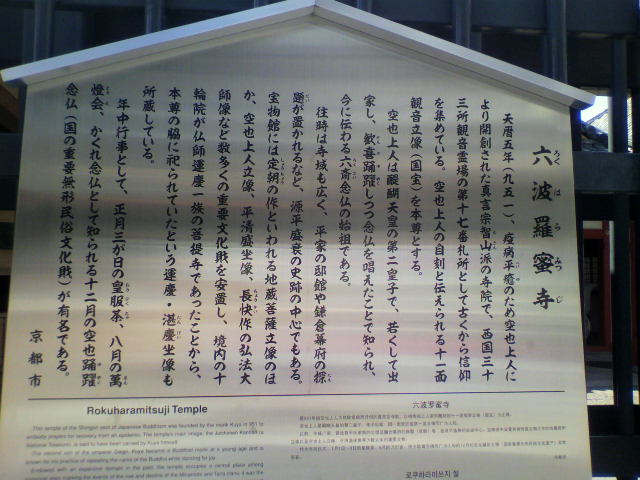 六波羅蜜寺
ろくはらみつじ
天暦五年（九五一）、疫病平癒のため空也上人に
より開創された真言宗智山派の寺院で、西国三十
三所観音霊場の第十七番札所として古くから信仰
を集めている。空也上人の自刻と伝えられる十一面
観音立像（国宝）を本尊とする。
空也上人は醍醐天皇の第二皇子で、若くして出
家し、歓喜踊躍しつつ念仏を唱えたことで知られ、
今に伝わる六斎念仏の始祖である。
往時は寺域も広く、平家の邸館や鎌倉幕府の探
題が置かれるなど、源平盛衰の史跡の中心でもある。
宝物館には定朝の作といわれる地蔵菩薩立像のほ
か、空也上人立像、平清盛坐像、長快作の弘法大
師像など数多くの重要文化財を安置し、境内の十
輪院が仏師運慶一族の菩提寺であったことから、
本尊の脇に祀られていたという運慶・湛慶坐像も
所蔵している。
年中行事として、正月三が日の皇服茶、八月の萬
燈会、かくれ念仏として知られる十二月の空也踊躍
念仏（国の重要無形民俗文化財）が有名である。
京都市
Rokuharamitsuji Temple
This temple of the Shingon sect of Japanese Buddhism was founded by the monk Kuya in 951 to
embody prayers for recovery from an epidemic. The temple's main image, the Juichimen Kannon (a
National Treasure), is said to have been carved by Kuya himself.
The second son of the emperor Daigo, Kuya became a Buddhist monk at a young age and is
known for his practice of repeating the name of the Buddha while dancing for joy.
Endowed with an expansive domain in the past, the temple occupied a central place among
六波罗蜜寺
로쿠하라미쓰지 절